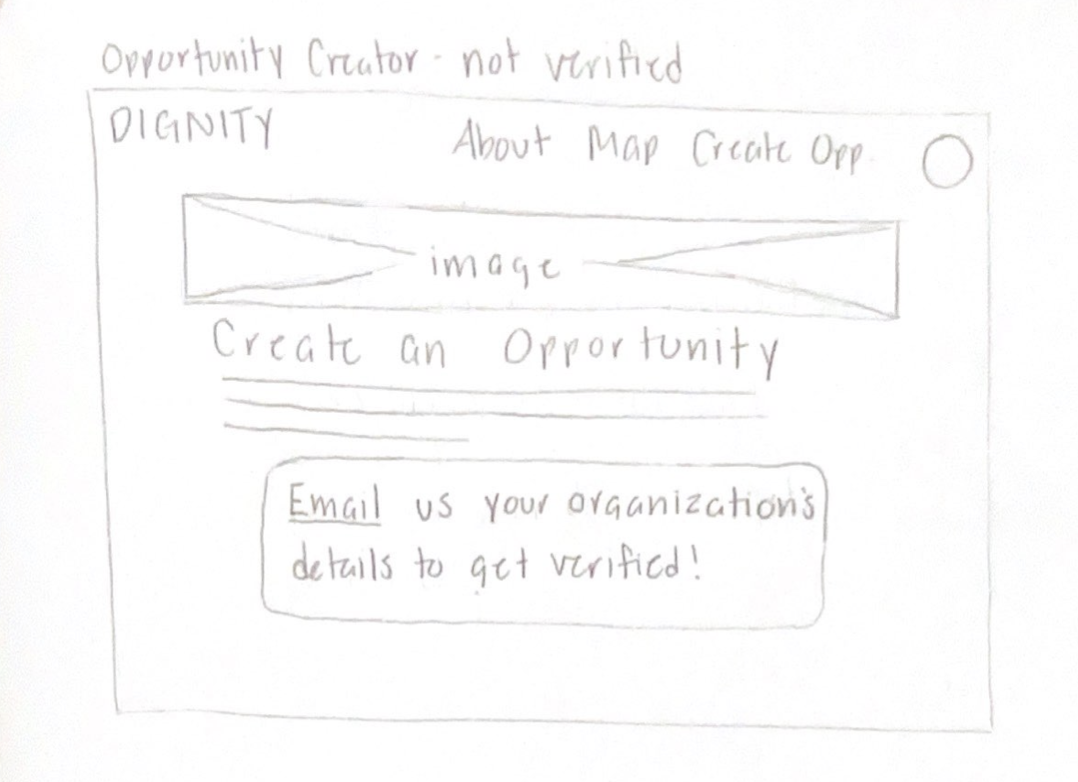 Opportunity Creator - not verified
DIGNITY
About Map Create Opp.
image
Create an Opportunity
Email us your organization's
details to get verified!